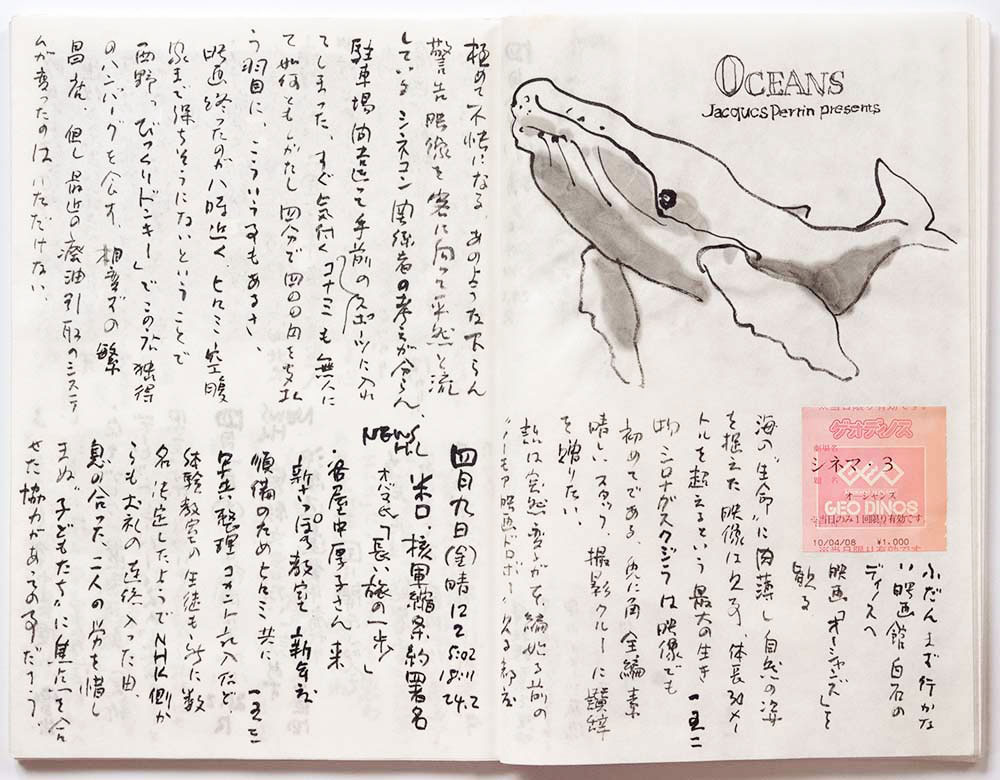 OCEANS
Jacques Perrin presents
ゲオディノス
劇場名
シネマ・3
題名
オーシャンズ
GEO DINOS
※当日のみ1回限り有効です
10/04/08 ¥1,000
※当日限り有効です
ふだんまず行かな
い映画館 白石の
ディノスへ
映画「オーシャンズ」を
観る
海の"生命"に肉薄し自然の姿
を捉えた映像は 体長30メー
トルを超えるという最大の生き 一五二
物シロナガスクジラは映像でも
初めてである。兎に角全編素
晴しい。スタッフ、撮影クルーに讃辞
を贈りたい。
話は突然変るが本編始る前の
ノーモア映画ドロボー 都度
極めて不快になる。あのような下らん
警告映像を客に向って平然と流
しているシネコン関係者の考えが分らん。
駐車場間違えて手前のスポーツに入れ
てしまった。すぐ気付くコナミも無人に
て如何ともしがたし四分で四百円を支払
う羽目に、こういう事もあるさ。
映画終ったのが八時近く、ヒロミ空腹
家まで保ちそうにないということで
西野「びっくりドンキー」でこの店独得
のハンバーグを食す。相変ずの繁
昌店。但し最近の廃油引取のシステ
ムが変ったのはいただけない。
四月九日(金)晴 12 2 5:02 18:11 24.2
NEWS 米ロ、核軍縮条約署名
オバマ氏「長い旅の一歩」
・名屋中厚子さん来
新さっぽろ教室 新年度
順備のためヒロミ共に 一五三
早共整理コメント記入など
体験教室の生徒も 数
名決定したようでNHK側か
らも大札の連絡入った由、
息の合った二人の労を惜し
まぬ"子どもたち"に焦点を合
せた協力があっての事だろう。